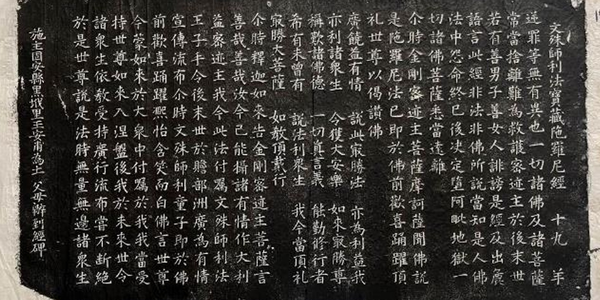 文殊師利法寶藏陁羅尼經 十九 羊
逆罪等無有異也一切諸佛及諸菩薩
常當捨離難為救護密迹主於後末世
若有善男子善女人誹謗是經及出麁
語言此經非法非佛所說當知是人佛
法中怨命終已後決定墮阿毗地獄一
切諸佛菩薩悉當遠離
尒時金剛密迹主菩薩摩訶薩聞佛說
是陁羅尼法已即於佛前歡喜踊躍頂
礼世尊以偈讚佛
廣饒益有情 說此寂勝法 亦為利益我
亦利諸衆生 令獲大安樂 如来寂勝尊
稱歎諸佛德 一切真言義 能勤修行者
希有未曾有 說法利衆生 我今當頂礼
寂勝大菩薩 如敎頂戴行
尒時釋迦如来告金剛密迹主菩薩言
善哉善哉汝今已能攝諸有情作大利
益密迹主我今此法付囑文殊師利法
王子手令後末世於贍部洲廣為有情
宣傳流布尒時文殊師利童子即於佛
前歡喜踊躍熈怡含笑而白佛言世尊
今蒙如来於大衆中付囑於我我當受
持世尊如来入涅盤後我於未来世令
諸衆生依敎受持廣行流布常不斷絶
於是世尊說是法時無量無邊諸衆生
施主固安縣黑城里王安甫為亡父母辦到經碑